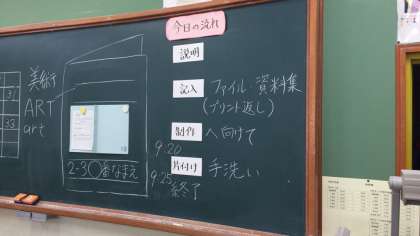 今日の流れ
説明
記入 ファイル・資料集
(プリント返し)
制作 へ向けて
9:20
片付け 手洗い
9:25 終了
美術
ART
art
2-3○番なまえ
31
33